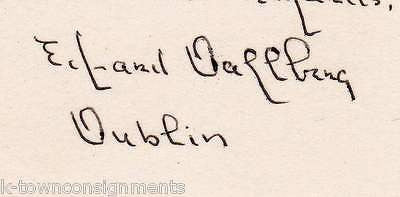 Edward Dahlberg
Dublin
k-townconsignments